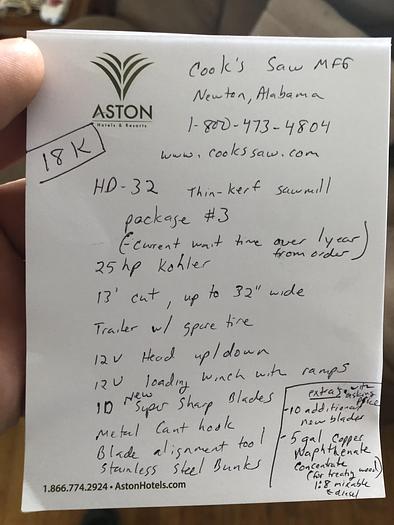 ASTON
Hotels & Resorts
Cook's Saw MFG
Newton, Alabama
1-800-473-4804
www.cookssaw.com
18K
HD-32 Thin-kerf sawmill
package #3
(-current wait time over 1 year
from order)
25 hp Kohler
13' cut, up to 32" wide
Trailer w/ spare tire
12V Head up/down
12V loading winch with ramps
10 New Super Sharp Blades
Metal Cant hook
Blade alignment tool
Stainless Steel Bunks
extras with
asking
price
-10 additional
new blades
-5 gal Copper
Naphthenate
Concentrate
(for treating wood)
1:8 mixable
diesel
1.866.774.2924 • AstonHotels.com